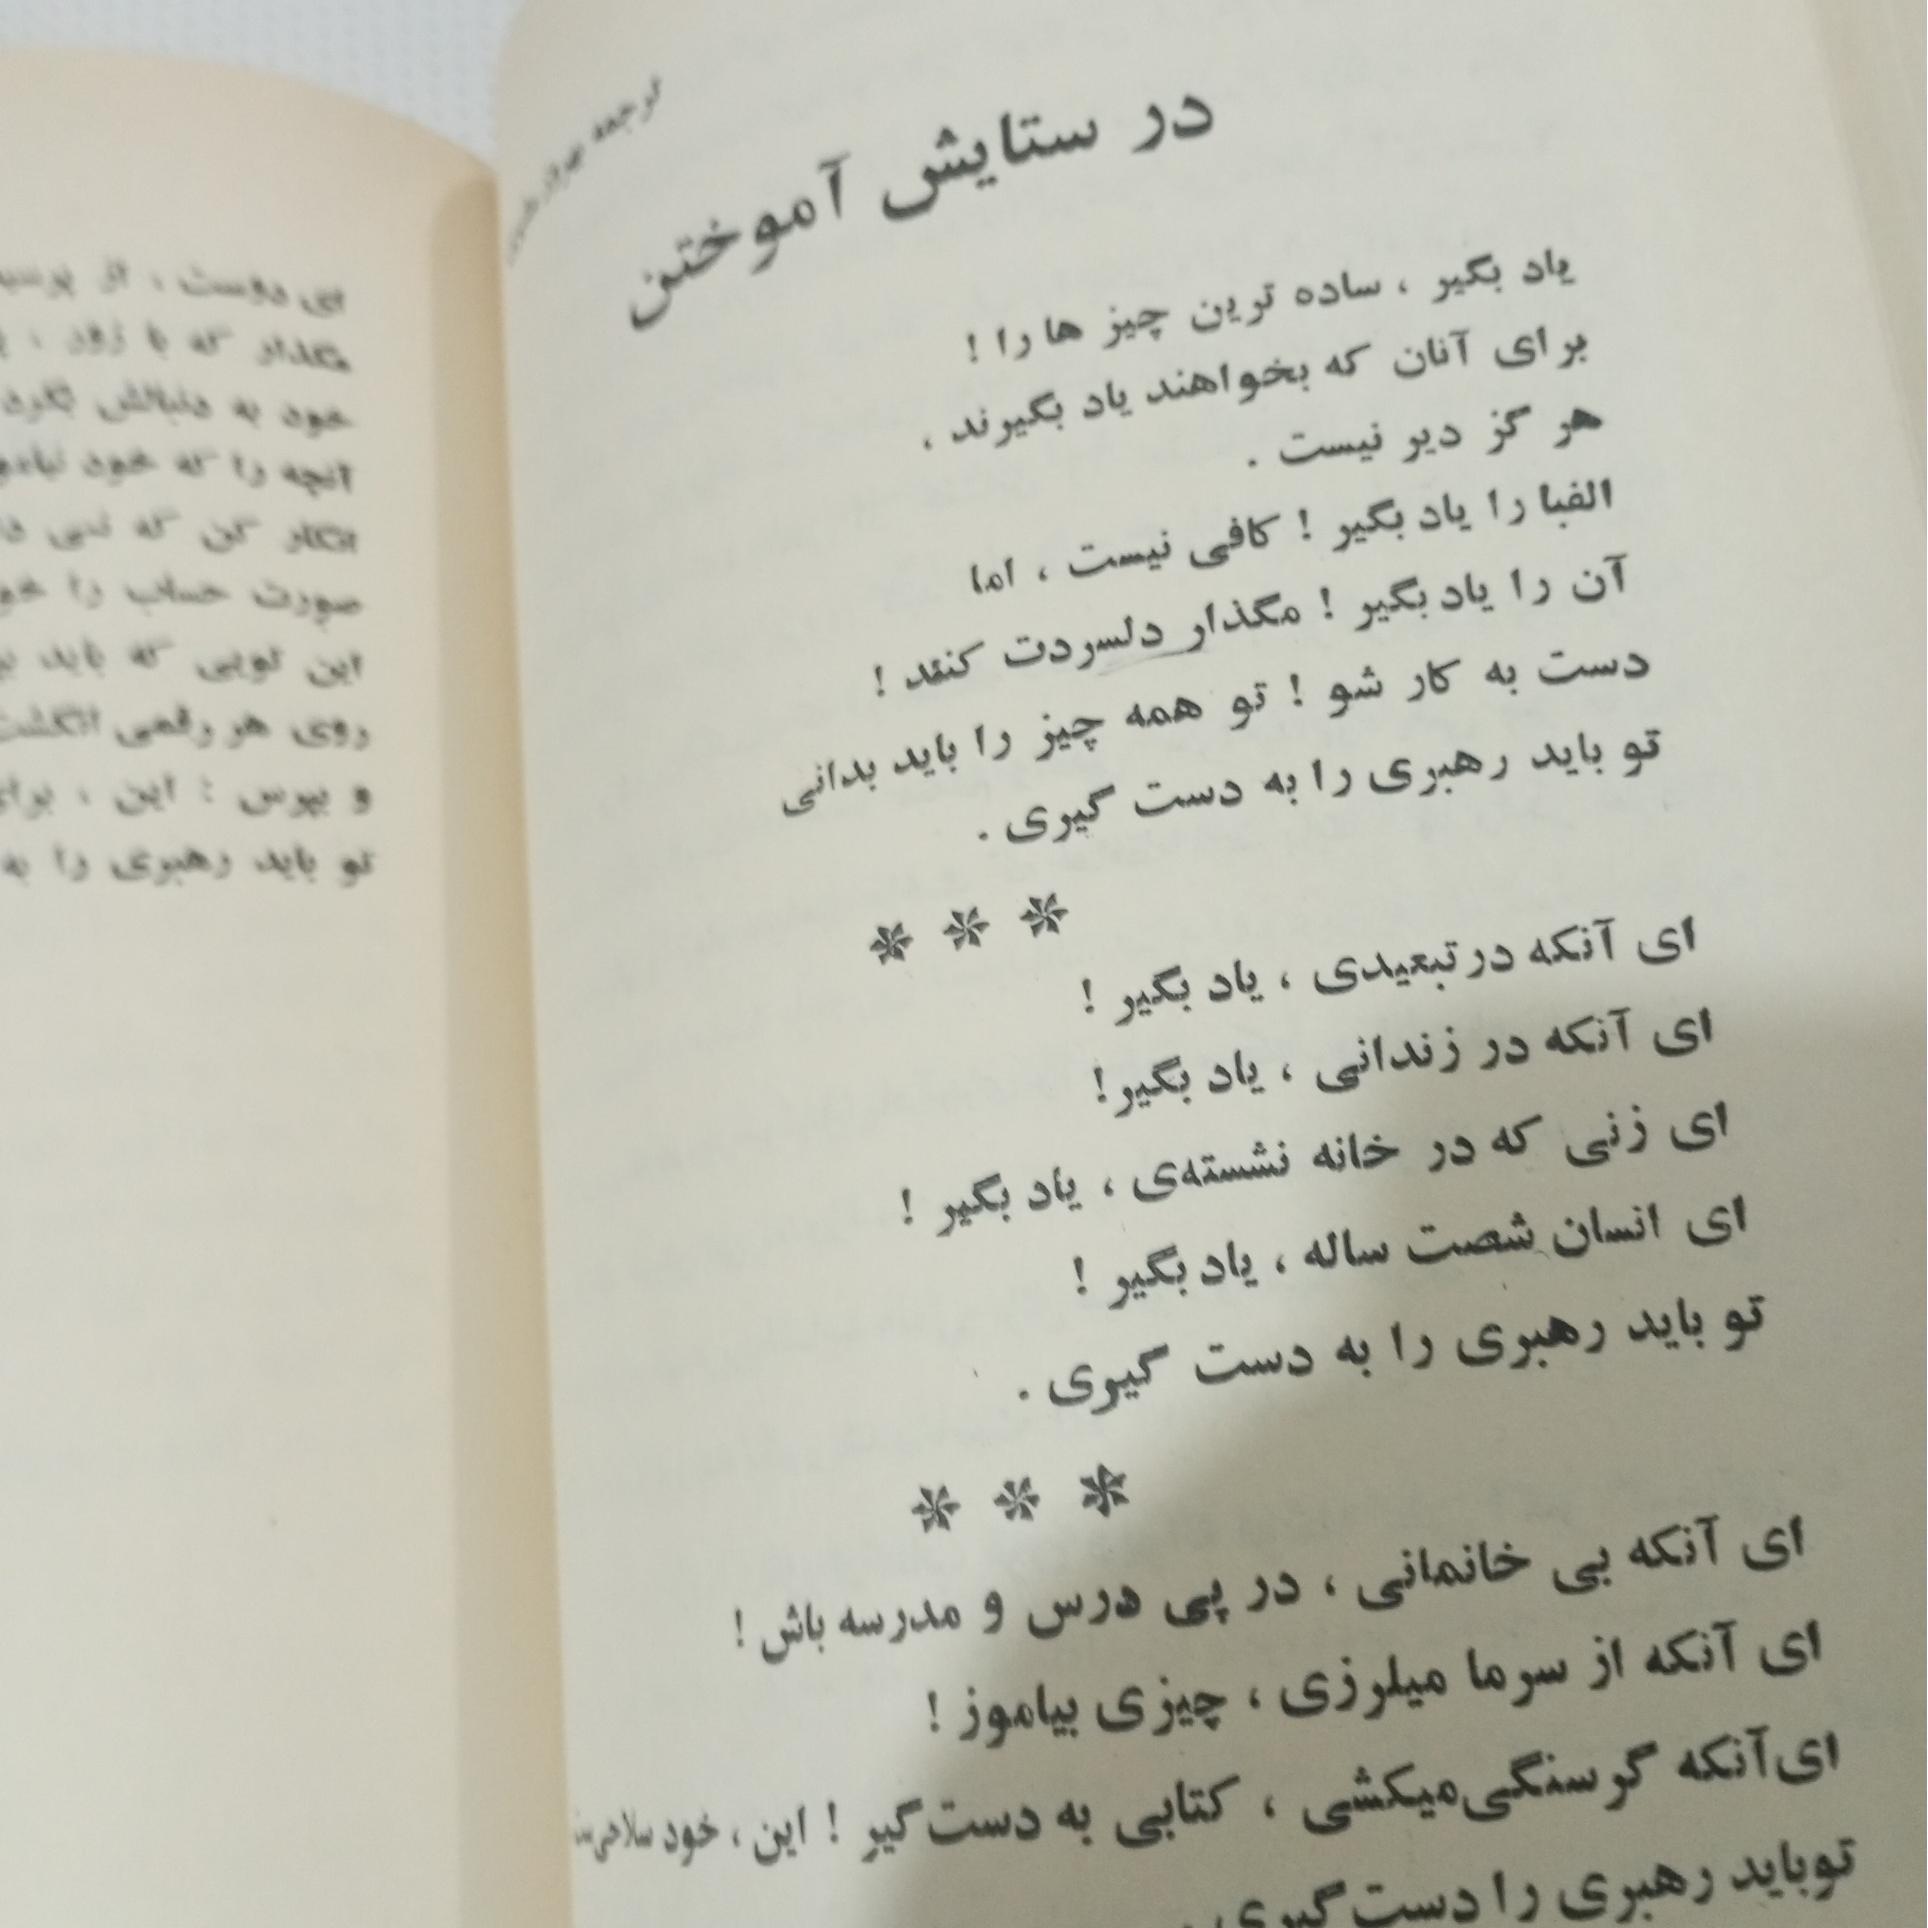 در ستایش آموختن
ترجمه
یاد بگیر ، ساده ترین چیز ها را !
برای آنان که بخواهند یاد بگیرند ،
هر گز دیر نیست .
الفبا را یاد بگیر ! کافی نیست ، اما
آن را یاد بگیر ! مگذار دلسردت کنند !
دست به کار شو ! تو همه چیز را باید بدانی
تو باید رهبری را به دست گیری .
* * *
ای آنکه در تبعیدی ، یاد بگیر !
ای آنکه در زندانی ، یاد بگیر !
ای زنی که در خانه نشسته‌ی ، یاد بگیر !
ای انسان شصت ساله ، یاد بگیر !
تو باید رهبری را به دست گیری .
* * *
ای آنکه بی خانمانی ، در پی درس و مدرسه باش !
ای آنکه از سرما میلرزی ، چیزی بیاموز !
ای آنکه گرسنگی میکشی ، کتابی به دست گیر ! این ، خود
تو باید رهبری را دست گیری .
ای دوست ، از
مگذار که با زور ،
خود به دنبالش بگرد
آنچه را که خود
انگار کن که نمی
صورت حساب را
این تویی که باید
روی هر رقمی انگشت
و بپرس : این ، برای
تو باید رهبری را به